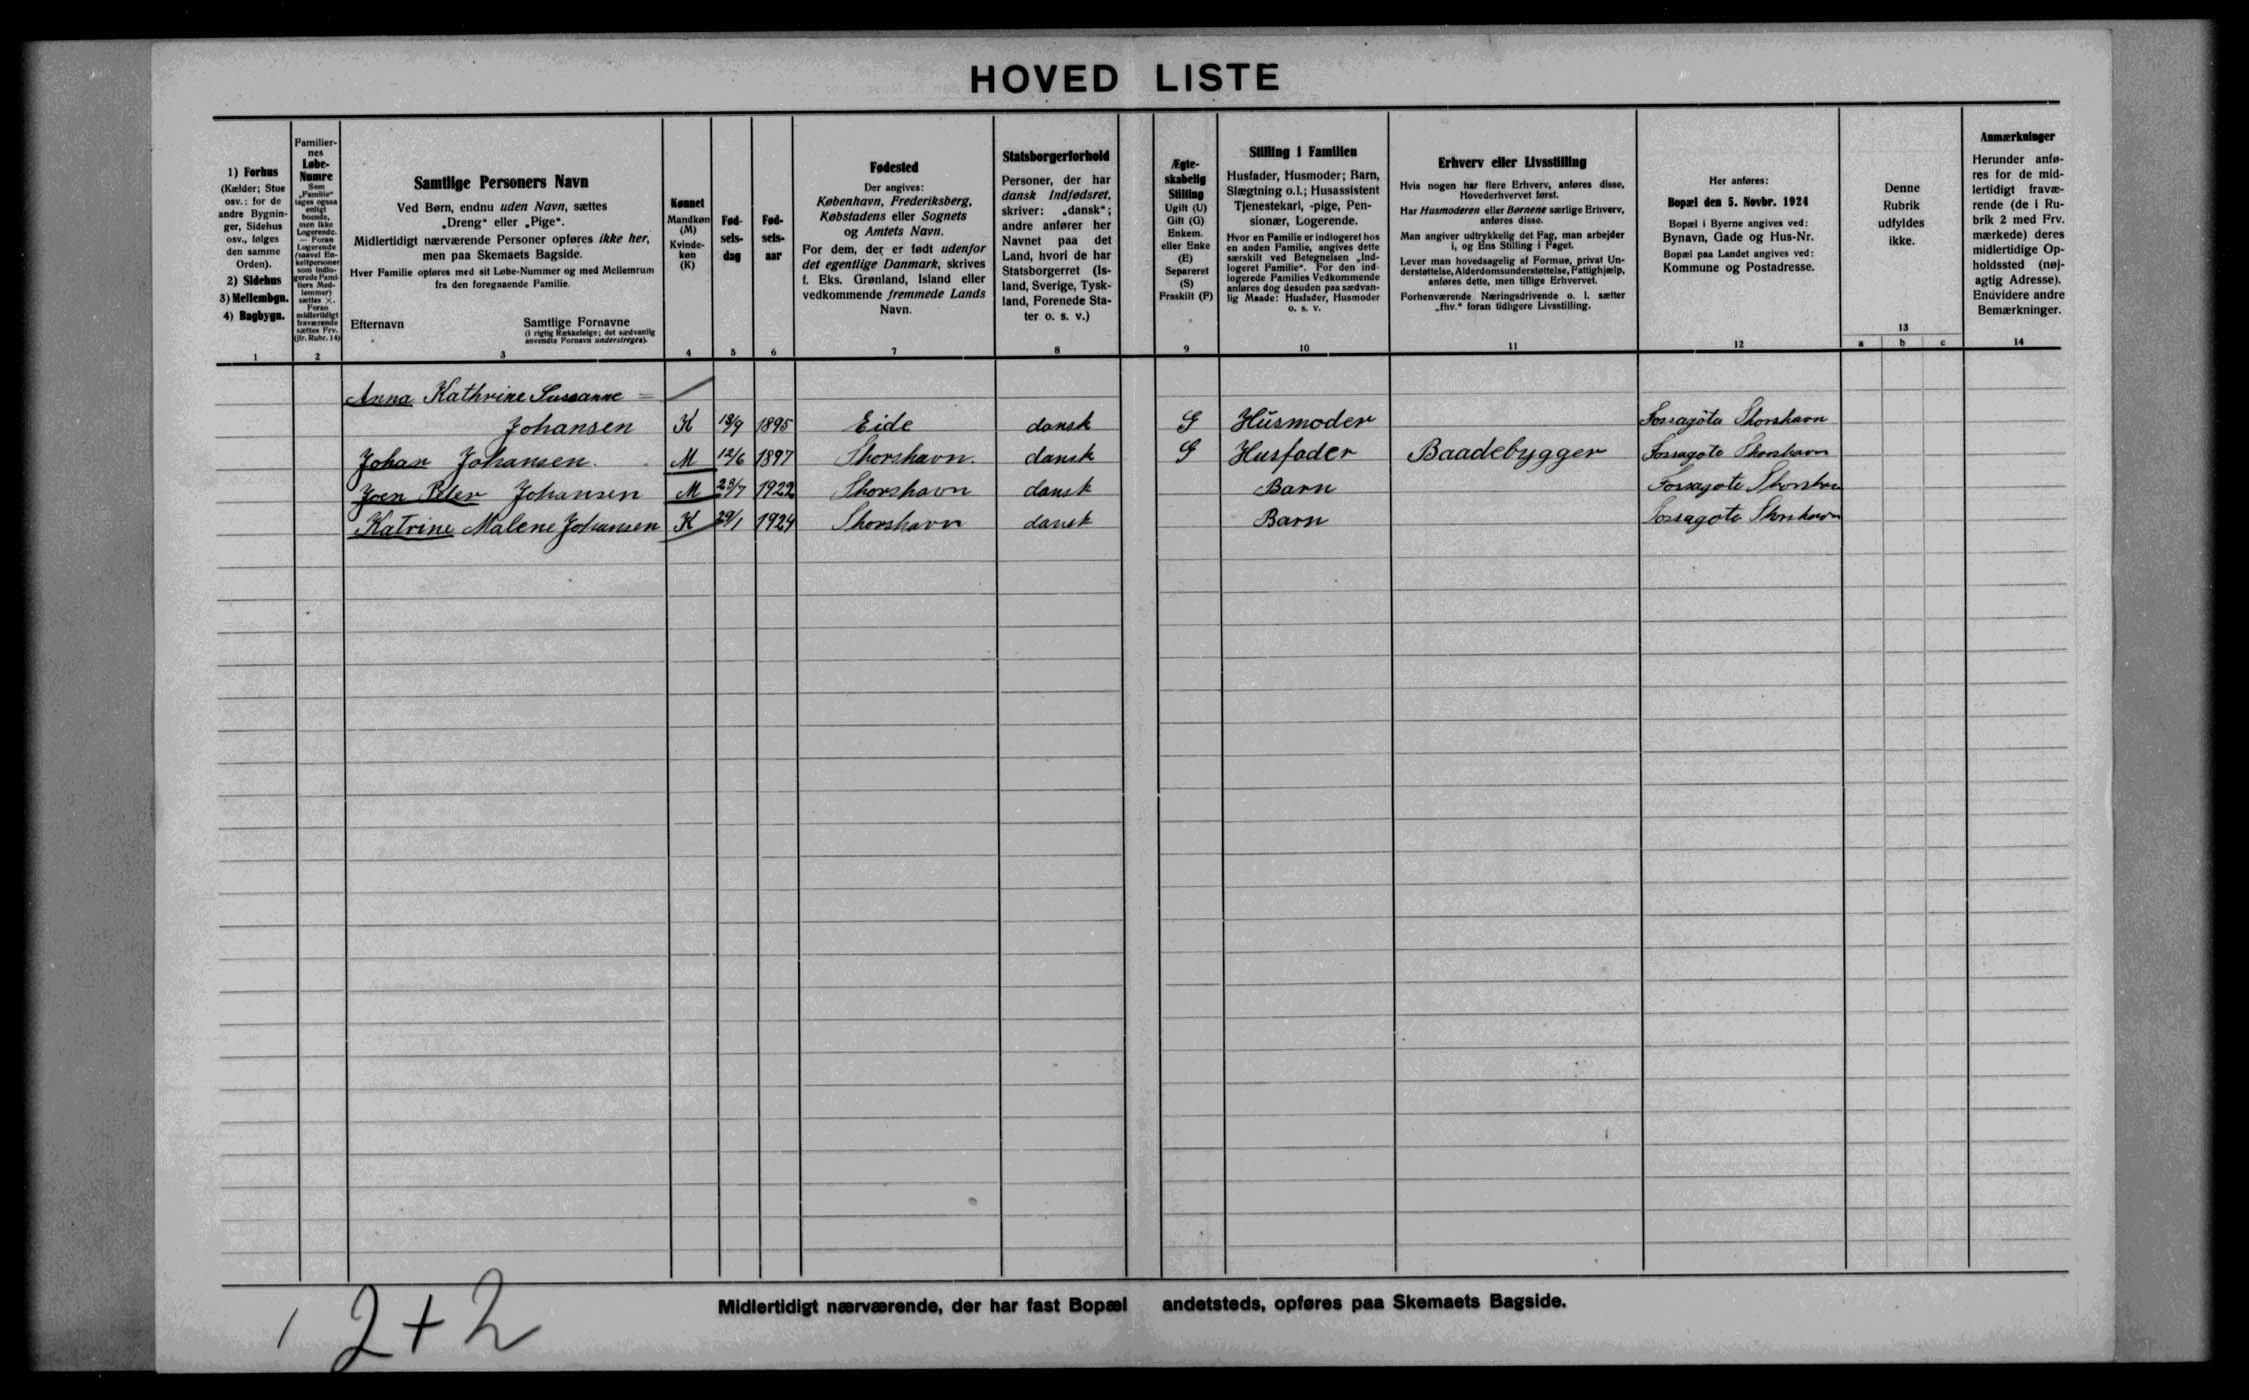 HOVED LISTE
1) Forhus
(Kælder; Stue
osv.: for de
andre Bygnin-
ger, Sidehus
osv., følges
den samme
Orden).
2) Sidehus
3) Mellembgn.
4) Bagbygn.
1
Familier-
nes
Løbe-
Numre
Som
„Familie“
tages ogsaa
enligt
boende,
men ikke
Logerende.
— Foran
Logerende
(saavel En-
keltpersoner
som indlo-
gerede Fami-
liers Med-
lemmer)
sættes ×.
Foran
midlertidigt
fraværende
sættes Frv.
(jfr. Rubr. 14)
2
Samtlige Personers Navn
Ved Børn, endnu uden Navn, sættes
„Dreng“ eller „Pige“.
Midlertidigt nærværende Personer opføres ikke her,
men paa Skemaets Bagside.
Hver Familie opføres med sit Løbe-Nummer og med Mellemrum
fra den foregaaende Familie.
Efternavn Samtlige Fornavne
(i rigtig Rækkefølge; det sædvanlig
anvendte Fornavn understreges).
3
Kønnet
Mandkøn
(M)
Kvinde-
køn
(K)
4
Fød-
sels-
dag
5
Fød-
sels-
aar
6
Fødested
Der angives:
København, Frederiksberg,
Købstadens eller Sognets
og Amtets Navn.
For dem, der er født udenfor
det egentlige Danmark, skrives
f. Eks. Grønland, Island eller
vedkommende fremmede Lands
Navn.
7
Statsborgerforhold
Personer, der har
dansk Indfødsret,
skriver: „dansk“;
andre anfører her
Navnet paa det
Land, hvori de har
Statsborgerret (Is-
land, Sverige, Tysk-
land, Forenede Sta-
ter o. s. v.)
8
Ægte-
skabelig
Stilling
Ugift (U)
Gift (G)
Enkem.
eller Enke
(E)
Separeret
(S)
Fraskilt (F)
9
Stilling i Familien
Husfader, Husmoder; Barn,
Slægtning o.l.; Husassistent
Tjenestekarl, -pige, Pen-
sionær, Logerende.
Hvor en Familie er indlogeret hos
en anden Familie, angives dette
særskilt ved Betegnelsen „Ind-
logeret Familie“. For den ind-
logerede Families Vedkommende
anføres dog desuden paa sædvan-
lig Maade: Husfader, Husmoder
o. s. v.
10
Erhverv eller Livsstilling
Hvis nogen har flere Erhverv, anføres disse,
Hovederhvervet først.
Har Husmoderen eller Børnene særlige Erhverv,
anføres disse.
Man angiver udtrykkelig det Fag, man arbejder
i, og Ens Stilling i Faget.
Lever man hovedsagelig af Formue, privat Un-
derstøttelse, Alderdomsunderstøttelse, Fattighjælp,
anføres dette, men tillige Erhvervet.
Forhenværende Næringsdrivende o. l. sætter
„fhv.“ foran tidligere Livsstilling.
11
Her anføres:
Bopæl den 5. Novbr. 1924
Bopæl i Byerne angives ved:
Bynavn, Gade og Hus-Nr.
Bopæl paa Landet angives ved:
Kommune og Postadresse.
12
Denne
Rubrik
udfyldes
ikke.
13
a b c
Anmærkninger
Herunder anfø-
res for de mid-
lertidigt fravæ-
rende (de i Ru-
brik 2 med Frv.
mærkede) deres
midlertidige Op-
holdssted (nøj-
agtig Adresse).
Endvidere andre
Bemærkninger.
14
Anna Kathrine Sussanne =
Johansen K 18/9 1895 Eide dansk G Husmoder Fossagøta Thorshavn
Johan Johansen. M 12/6 1897 Thorshavn. dansk G Husfader Baadebygger Fossagøta Thorshavn
Joen Peter Johansen M 23/7 1922 Thorshavn dansk Barn Fossagøta Thorshavn
Katrine Malene Johansen K 29/1 1924 Thorshavn dansk Barn Fossagøta Thorshavn
Midlertidigt nærværende, der har fast Bopæl andetsteds, opføres paa Skemaets Bagside.
1 2+2